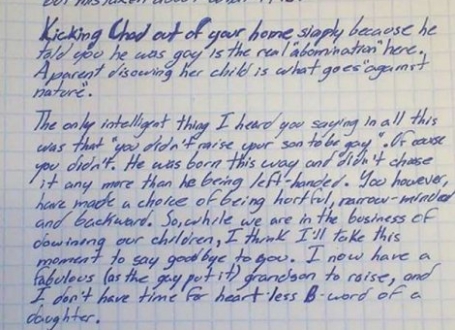 but mistaken about what
Kicking Chad out of your home simply because he
told you he was gay is the real "abomination" here.
A parent disowing her child is what goes "against
nature".
The only intelligent thing I heard you saying in all this
was that "you didn't raise your son to be gay". Of course
you didn't. He was born this way and didn't choose
it any more than he being left-handed. You however,
have made a choice of being hurtful, narrow-minded
and backward. So, while we are in the business of
downining our children, I think I'll take this
moment to say goodbye to you. I now have a
fabulous (as the gay put it) grandson to raise, and
I don't have time for heart less B-word of a
daughter.